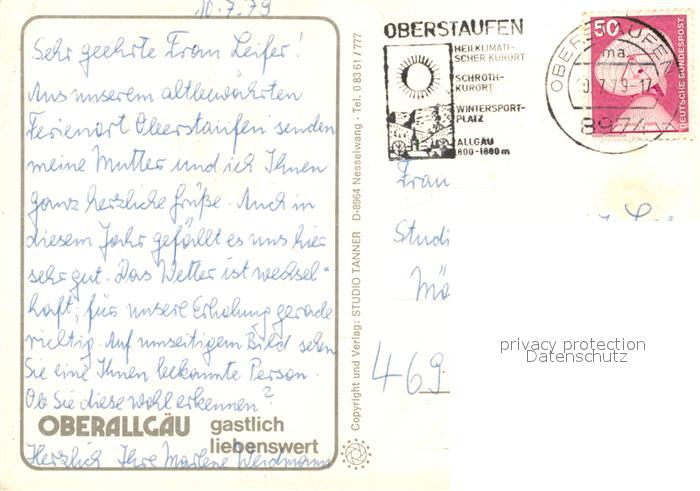 10.7.79
Sehr geehrte Frau Leifer!
Aus unserem altbewährten
Ferienort Oberstaufen senden
meine Mutter und ich Ihnen
ganz herzliche Grüße. Auch in
diesem Jahr gefällt es uns hier
sehr gut. Das Wetter ist wechsel-
haft; für unsere Erholung gerade
richtig. Auf umseitigem Bild sehen
Sie eine Ihnen bekannte Person.
Ob Sie diese wohl erkennen?
OBERALLGÄU gastlich
liebenswert
Herzlich Ihre Marlene Weidmann
Copyright und Verlag: STUDIO TANNER D-8964 Nesselwang · Tel. 0 83 61 / 777
OBERSTAUFEN
HEILKLIMATI-
SCHER KURORT
SCHROTH-
KURORT
WINTERSPORT-
PLATZ
ALLGÄU
800-1880 m
OBERSTAUFEN
ma
7.79-17
8974
50
DEUTSCHE BUNDESPOST
Frau
Studi
Mä
469
privacy protection
Datenschutz